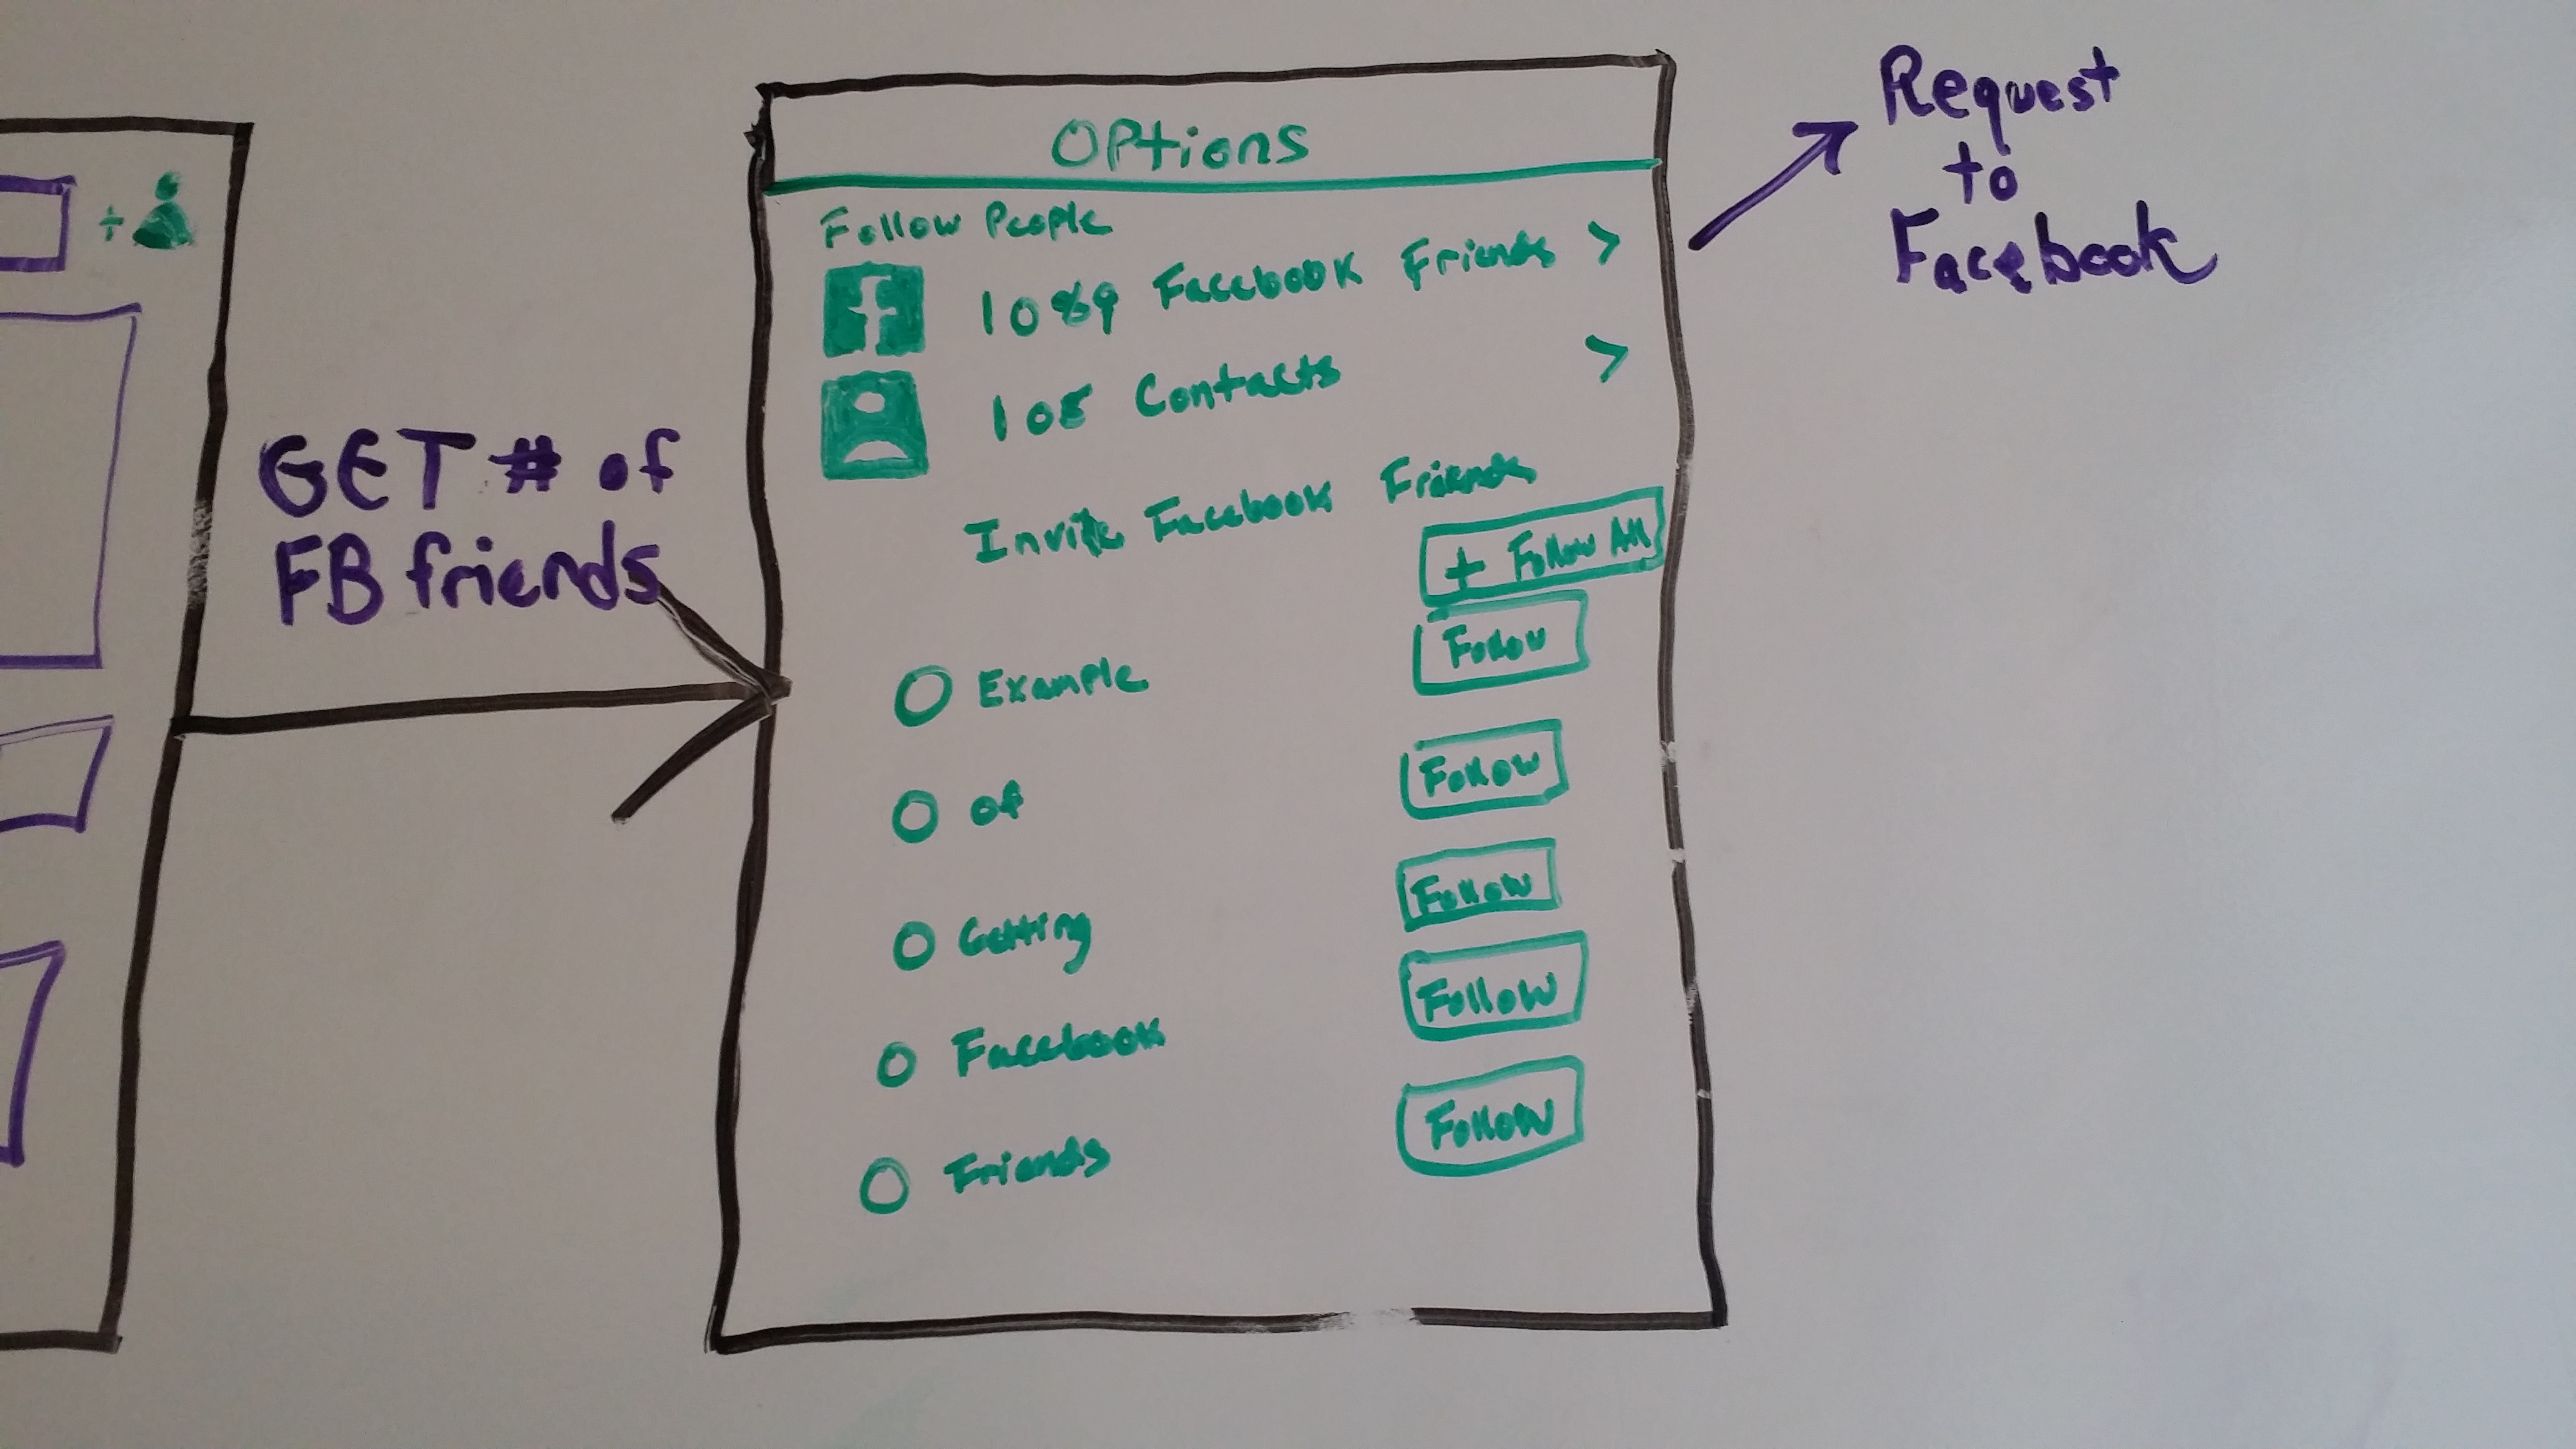 OPtions
Follow People
f
1089 Facebook Friends >
108 Contacts >
Invite Facebook Friends
+ Follow All
Example
Follow
of
Follow
Getting
Follow
Facebook
Follow
Friends
Follow
GET # of
FB friends
Request
to
Facebook
+